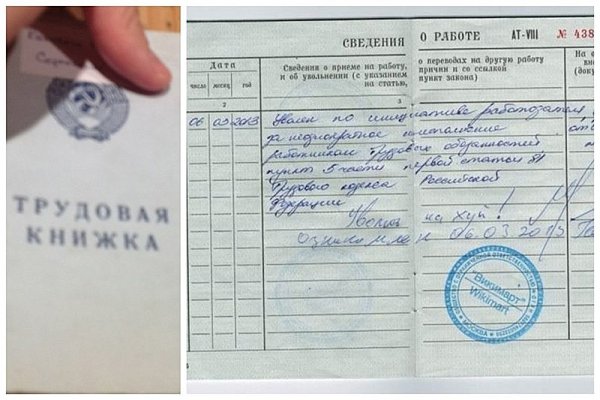 ТРУДОВАЯ
КНИЖКА
СВЕДЕНИЯ О РАБОТЕ АТ-VIII № 438
Дата
Сведения о приеме на работу, о переводах на другую работу
и об увольнении (с указанием причин и со ссылкой
на статью, пункт закона)
число месяц год
2 3
06 03 2013 Уволен по инициативе работодателя
за неоднократное неисполнение
работником трудовых обязанностей
пункт 5 части первой статьи 81
Трудового кодекса Российской
Федерации
Уволен на хуй!
Ознакомлен 06.03.2013
"Викимарт"
Wikimart
МОСКВА